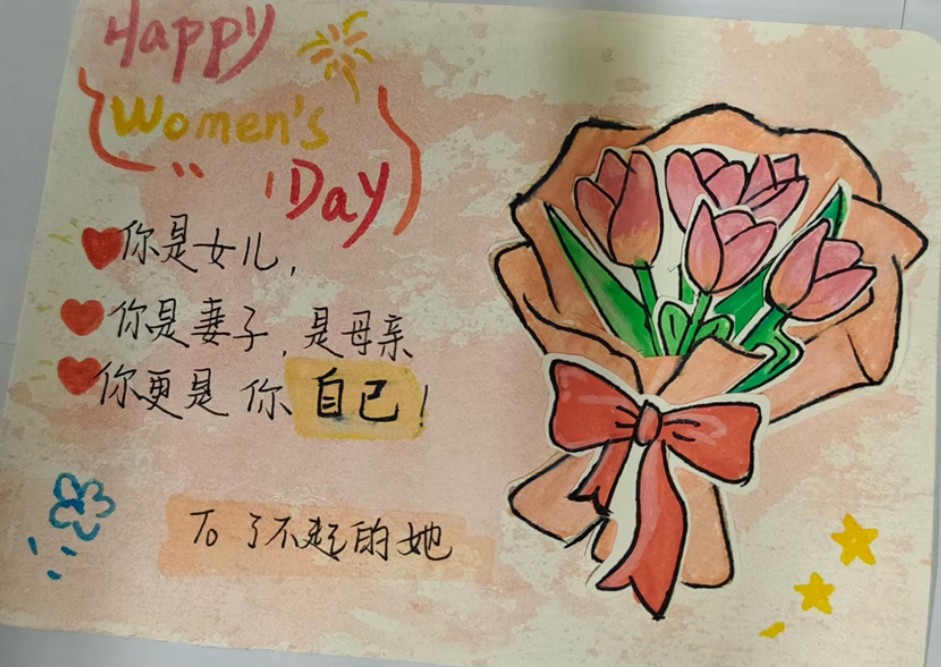 Happy
Women's
Day
你是女儿,
你是妻子,是母亲
你更是你自己!
To 了不起的她